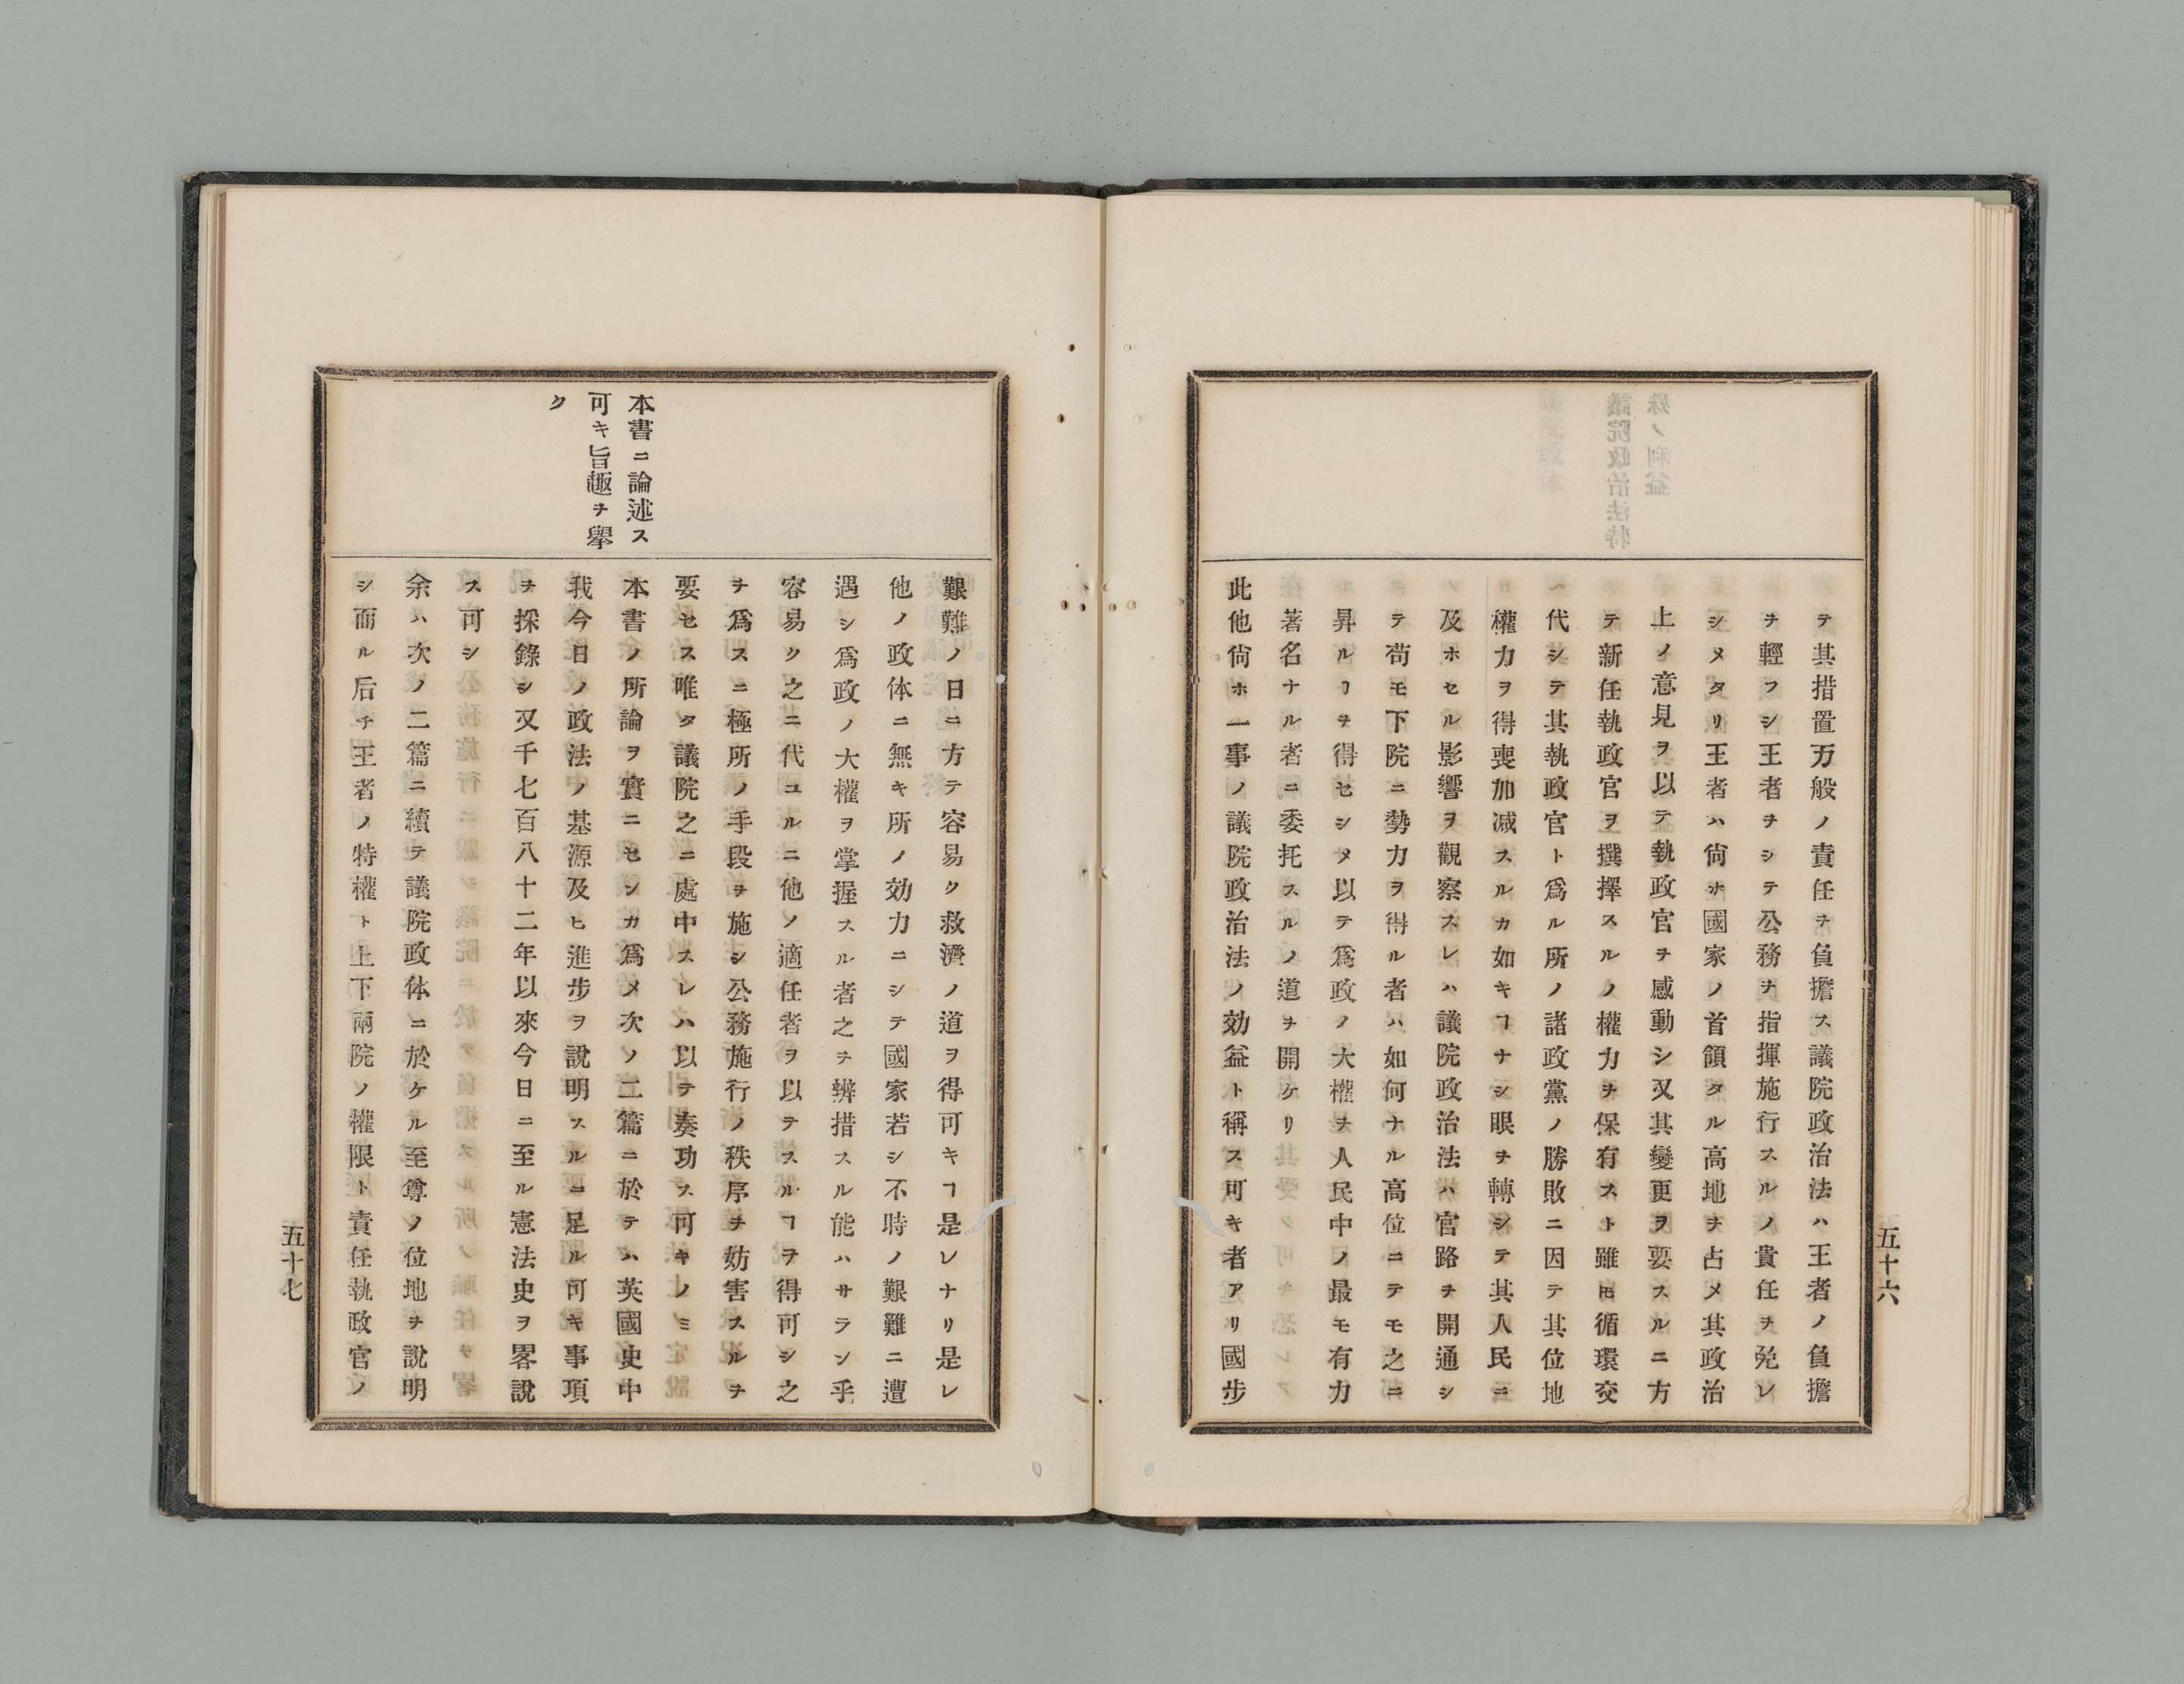 テ其措置万般ノ責任ヲ負擔ス議院政治法ハ王者ノ負擔
ヲ輕フシ王者ヲシテ公務ヲ指揮施行スルノ責任ヲ免レ
シメタリ王者ハ尙ホ國家ノ首領タル高地ヲ占メ其政治
上ノ意見ヲ以テ執政官ヲ感動シ又其變更ヲ要スルニ方
テ新任執政官ヲ撰擇スルノ權力ヲ保有スト雖𪜈循環交
代シテ其執政官ト爲ル所ノ諸政黨ノ勝敗ニ因テ其位地
權力ヲ得喪加減スルカ如キヿナシ眼ヲ轉シテ其人民ニ
及ホセル影響ヲ觀察スレハ議院政治法ハ官路ヲ開通シ
テ苟モ下院ニ勢力ヲ得ル者ハ如何ナル高位ニテモ之ニ
昇ルヿヲ得セシメ以テ爲政ノ大權ヲ人民中ノ最モ有力
著名ナル者ニ委托スルノ道ヲ開ケリ
此他尙ホ一事ノ議院政治法ノ効益ト稱ス可キ者アリ國步
五十六
艱難ノ日ニ方テ容易ク救濟ノ道ヲ得可キヿ是レナリ是レ
他ノ政体ニ無キ所ノ効力ニシテ國家若シ不時ノ艱難ニ遭
遇シ爲政ノ大權ヲ掌握スル者之ヲ辨措スル能ハサラン乎
容易ク之ニ代ユルニ他ノ適任者ヲ以テスルヿヲ得可シ之
ヲ爲スニ極所ノ手段ヲ施シ公務施行ノ秩序ヲ妨害スルヲ
要セス唯タ議院之ニ處中スレハ以テ奏功ス可キノミ
本書ニ論述ス
可キ旨趣ヲ擧
ク
本書ノ所論ヲ實ニセンカ爲メ次ノ二篇ニ於テハ英國史中
我今日ノ政法ノ基源及ヒ進步ヲ說明スルニ足ル可キ事項
ヲ採錄シ又千七百八十二年以來今日ニ至ル憲法史ヲ畧說
ス可シ
余ハ次ノ二篇ニ續テ議院政体ニ於ケル至尊ノ位地ヲ說明
シ而ル后チ王者ノ特權ト上下兩院ノ權限ト責任執政官ノ
五十七